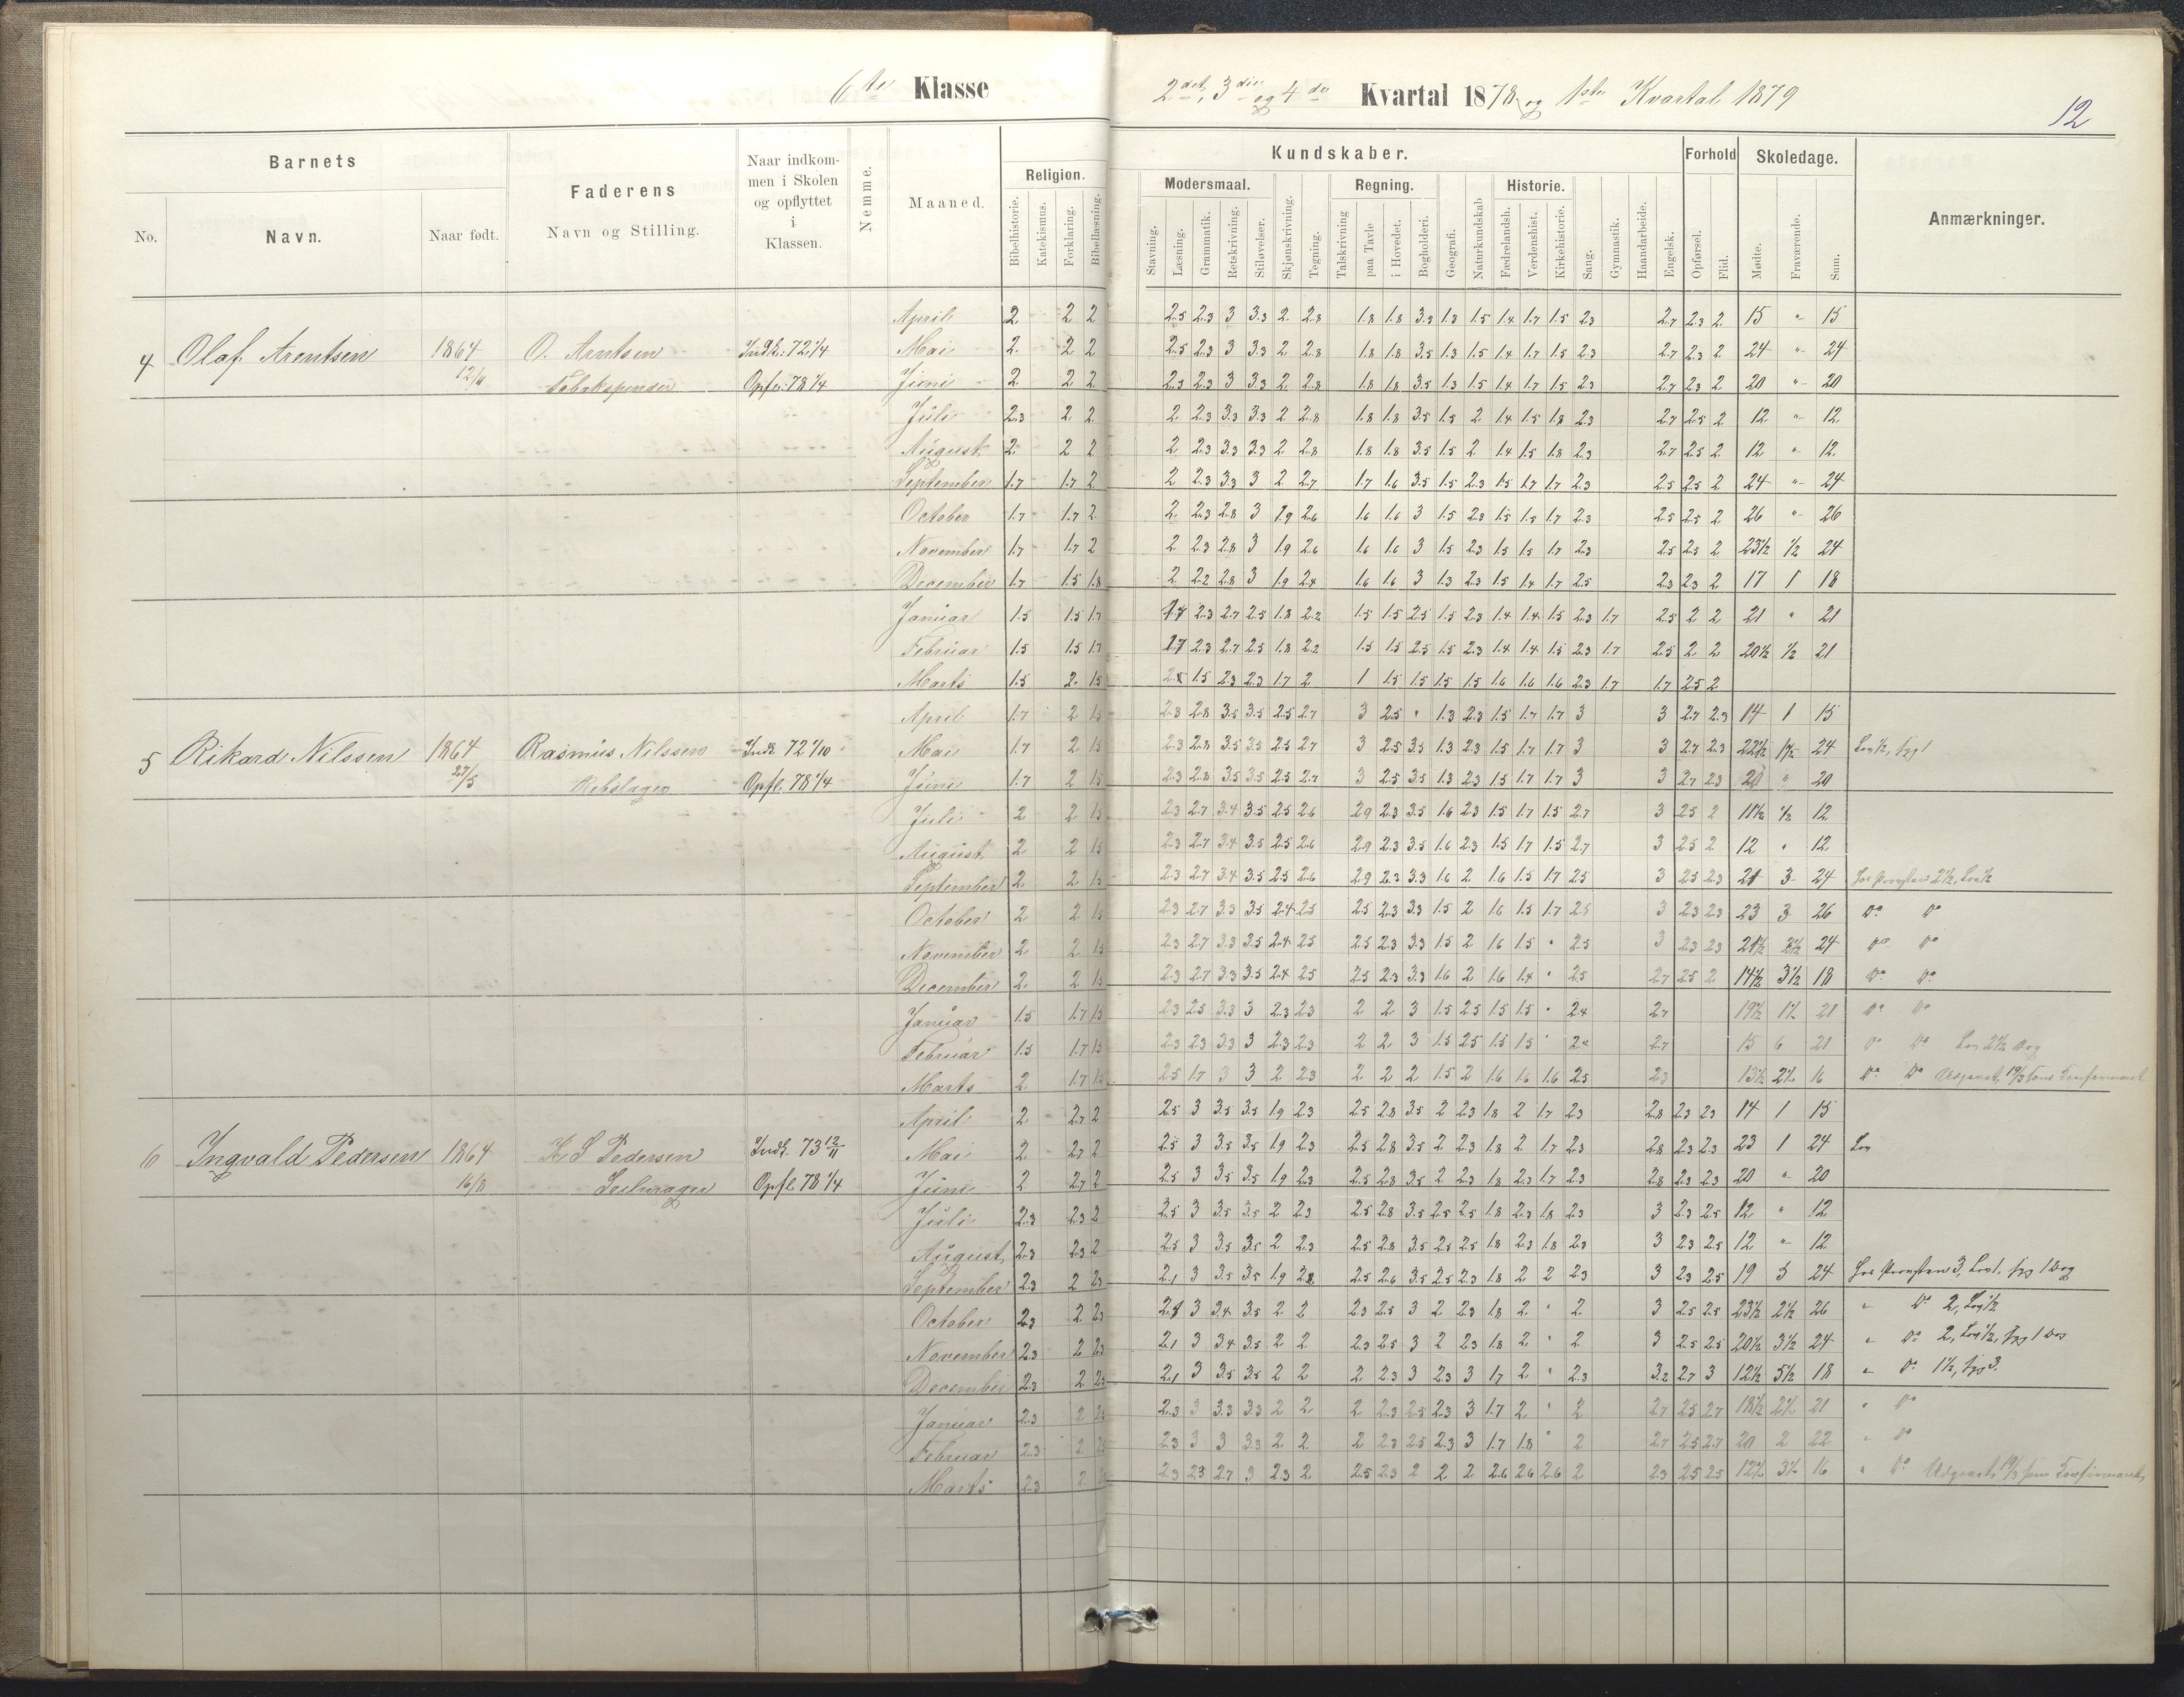 6te Klasse 2det, 3die og 4de Kvartal 1878 og 1ste Kvartal 1879
12
Barnets
No.
Navn.
Naar født.
Faderens
Navn og Stilling.
Naar indkom-
men i Skolen
og opflyttet
i
Klassen.
Nemme.
Maaned.
Religion.
Bibelhistorie.
Katekismus.
Forklaring.
Bibellæsning.
Kundskaber.
Modersmaal.
Stavning.
Læsning.
Grammatik.
Retskrivning.
Stiløvelser.
Skjønskrivning.
Tegning.
Regning.
Talskrivning
paa Tavle
i Hovedet.
Bogholderi.
Geografi.
Naturkundskab
Historie.
Fædrelandsh.
Verdenshist.
Kirkehistorie.
Sang.
Gymnastik.
Haandarbeide.
Engelsk.
Forhold
Opførsel.
Flid.
Skoledage.
Mødte.
Fraværende.
Sum.
Anmærkninger.
April 2 2 2 2.5 2.3 3 3.3 2 2.8 1.8 1.8 3.3 1.3 1.5 1.4 1.7 1.5 2.3 2.7 2.3 2 15 " 15
4 Olaf Arentsen 1864 O. Arntsen Indk: 72 1/4 Mai 2 2 2 2.5 2.3 3 3.3 2 2.8 1.8 1.8 3.5 1.3 1.5 1.4 1.7 1.5 2.3 2.7 2.3 2 24 " 24
12/11 Opfl: 78 1/4 Juni 2 2 2 2.3 2.3 3 3.3 2 2.8 1.8 1.8 3.5 1.3 1.5 1.4 1.7 1.5 2.3 2.7 2.3 2 20 " 20
Juli 2.3 2 2 2 2.3 3.3 3.3 2 2.8 1.8 1.8 3.5 1.5 2 1.4 1.5 1.8 2.3 2.7 2.5 2 12 " 12
August 2 2 2 2 2.3 3.3 3.3 2 2.8 1.8 1.8 3.5 1.5 2 1.4 1.5 1.8 2.3 2.7 2.5 2 12 " 12
September 1.7 1.7 2 2 2.3 3.3 3 2 2.7 1.7 1.6 3.5 1.5 2.3 1.5 1.7 1.7 2.3 2.5 2.5 2 24 " 24
October 1.7 1.7 2 2 2.3 2.8 3 1.9 2.6 1.6 1.6 3 1.5 2.3 1.5 1.5 1.7 2.3 2.5 2.5 2 26 " 26
November 1.7 1.7 2 2 2.3 2.8 3 1.9 2.6 1.6 1.6 3 1.5 2.3 1.5 1.5 1.7 2.3 2.5 2.5 2 23 1/2 1/2 24
December 1.7 1.5 1.8 2 2.2 2.8 3 1.9 2.4 1.6 1.6 3 1.3 2.3 1.5 1.4 1.7 2.5 2.3 2.3 2 17 1 18
Januar 1.5 1.5 1.7 2.3 2.7 2.5 1.8 2.2 1.5 1.5 2.5 1.5 2.3 1.4 1.4 1.5 2.3 1.7 2.5 2 2 21 " 21
Februar 1.5 1.5 1.7 1.7 2.3 2.7 2.5 1.8 2.2 1.5 1.5 2.5 1.5 2.3 1.4 1.4 1.5 2.3 1.7 2.5 2 2 20 1/2 1/2 21
Marts 1.5 2 1.5 1.5 2.3 2.3 1.7 2 1 1.5 1.5 1.5 1.5 1.6 1.6 1.6 2.3 1.7 1.7 2.5 2
April 1.7 2 1.5 2.3 2.8 3.5 3.5 2.5 2.7 3 2.5 " 1.3 2.3 1.5 1.7 1.7 3 3 2.7 2.3 14 1 15
5 Rikard Nilssen 1864 Rasmus Nilssen Indk. 72 1/10 Mai 1.7 2 1.5 2.3 2.8 3.5 3.5 2.5 2.7 3 2.5 3.5 1.3 2.3 1.5 1.7 1.7 3 3 2.7 2.3 22 1/2 1 1/2 24
27/5 Rebslager Opfl. 78 1/4 Juni 1.7 2 1.5 2.3 2.8 3.5 3.5 2.5 2.7 3 2.5 3.5 1.3 2.3 1.5 1.7 1.7 3 3 2.7 2.3 20 " 20
Juli 2 2 1.5 2.3 2.7 3.4 3.5 2.5 2.6 2.9 2.3 3.5 1.6 2.3 1.5 1.7 1.5 2.7 3 2.5 2 11 1/2 1/2 12
August 2 2 1.5 2.3 2.7 3.4 3.5 2.5 2.6 2.9 2.3 3.5 1.6 2.3 1.5 1.7 1.5 2.7 3 2.5 2 12 " 12
September 2 2 1.5 2.3 2.7 3.4 3.5 2.5 2.6 2.9 2.3 3.3 1.6 2 1.6 1.5 1.7 2.5 3 2.5 2.3 21 3 24 hos Provsten 2 1/2, Lov 1/2
October 2 2 1.5 2.3 2.7 3.3 3.5 2.4 2.5 2.5 2.3 3.3 1.5 2 1.6 1.5 1.7 2.5 3 2.3 2.3 23 3 26 Do Do
November 2 2 1.5 2.3 2.7 3.3 3.5 2.4 2.5 2.5 2.3 3.3 1.5 2 1.6 1.5 " 2.5 3 2.3 2.3 21 1/2 2 1/2 24 Do Do
December 2 2 1.5 2.3 2.7 3.3 3.5 2.4 2.5 2.5 2.3 3.3 1.6 2 1.6 1.4 " 2.5 2.7 2.5 2 14 1/2 3 1/2 18 Do Do
Januar 1.5 1.7 1.5 2.3 2.5 3.3 3 2.3 2.3 2 2 3 1.5 2.5 1.5 1.5 " 2.4 2.7 19 1/2 1 1/2 21 Do Do
Februar 1.5 1.7 1.5 2.3 2.3 3.3 3 2.3 2.3 2 2 3 1.5 2.5 1.5 1.5 " 2.4 2.7 15 6 21 Do Do Lov 2 1/2 Dag
Marts 2 1.7 1.5 2.5 1.7 3 3 2 2.3 2 2 2 1.5 2 1.6 1.6 1.6 2.5 2.3 13 1/2 2 1/2 16 Do Do Udgaaet 19/3 som Confirmant
April 2 2.7 2 2.5 3 3.5 3.5 1.9 2.3 2.5 2.8 3.5 2 2.3 1.8 2 1.7 2.3 2.8 2.3 2.3 14 1 15
6 Ingvald Pedersen 1864 Pedersen Indk. 73 12/11 Mai 2 2.7 2 2.5 3 3.5 3.5 1.9 2.3 2.5 2.8 3.5 2 2.3 1.8 2 1.7 2.3 2.8 2.3 2.3 23 1 24 Lov
16/8 Opfl. 78 1/4 Juni 2 2.7 2 2.5 3 3.5 3.5 1.9 2.3 2.5 2.8 3.5 2 2.3 1.8 2.3 1.7 2.3 2.8 2.3 2.3 20 " 20
Juli 2.3 2.3 2 2.5 3 3.5 3.5 2 2.3 2.5 2.8 3.5 2.5 2.5 1.8 2.3 1.8 2.3 3 2.3 2.5 12 " 12
August 2.3 2.3 2 2.5 3 3.5 3.5 2 2.3 2.5 2.8 3.5 2.5 2.5 1.8 2.3 1.8 2.3 3 2.3 2.5 12 " 12
September 2.3 2 2.3 2.1 3 3.5 3.5 1.9 2.2 2.5 2.6 3.5 2.5 2.3 1.8 2 2 2.3 3 2.3 2.5 19 5 24 hos Provsten 3, Lov 1, 1 Dag
October 2.3 2 2.3 2.1 3 3.4 3.5 2 2 2.3 2.5 3 2 2.3 1.8 2 " 2 3 2.5 2.5 23 1/2 2 1/2 26 " Do 2, Lov 1/2
November 2.3 2 2.3 2.1 3 3.4 3.5 2 2 2.3 2.5 3 2 2.3 1.8 2 " 2 3 2.5 2.5 20 1/2 3 1/2 24 " Do 2, Lov 1/2, 1 Dag
December 2.3 2 2.3 2.1 3 3.5 3.5 2 2 2 2.3 3 2.3 3 1.7 2 " 2.3 3.2 2.7 3 12 1/2 5 1/2 18 " Do 1 1/2, 3
Januar 2.3 2 2.3 2.3 3 3.3 3.3 2 2 2 2.3 2.5 2.3 3 1.7 2 " 2 2.7 2.5 2.7 18 1/2 2 1/2 21 " Do
Februar 2.3 2 2.3 2.3 3 3 3.3 2 2 2 2.3 2.5 2.3 3 1.7 1.8 " 2 2.7 2.5 2.7 20 2 22 " Do
Marts 2.3 2 2.3 2.3 2.7 3 2.3 2 2.5 2.3 2 2 2 2.6 2.6 2.6 2 2.3 2.5 2.5 12 1/2 3 1/2 16 " Do Udgaaet 19/3 som Confirmant